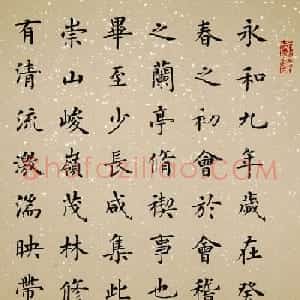 永和九年歲在癸
春之初會於會稽
之蘭亭脩禊事也
畢至少長咸集此
崇山峻嶺茂林修
有清流激湍映帶